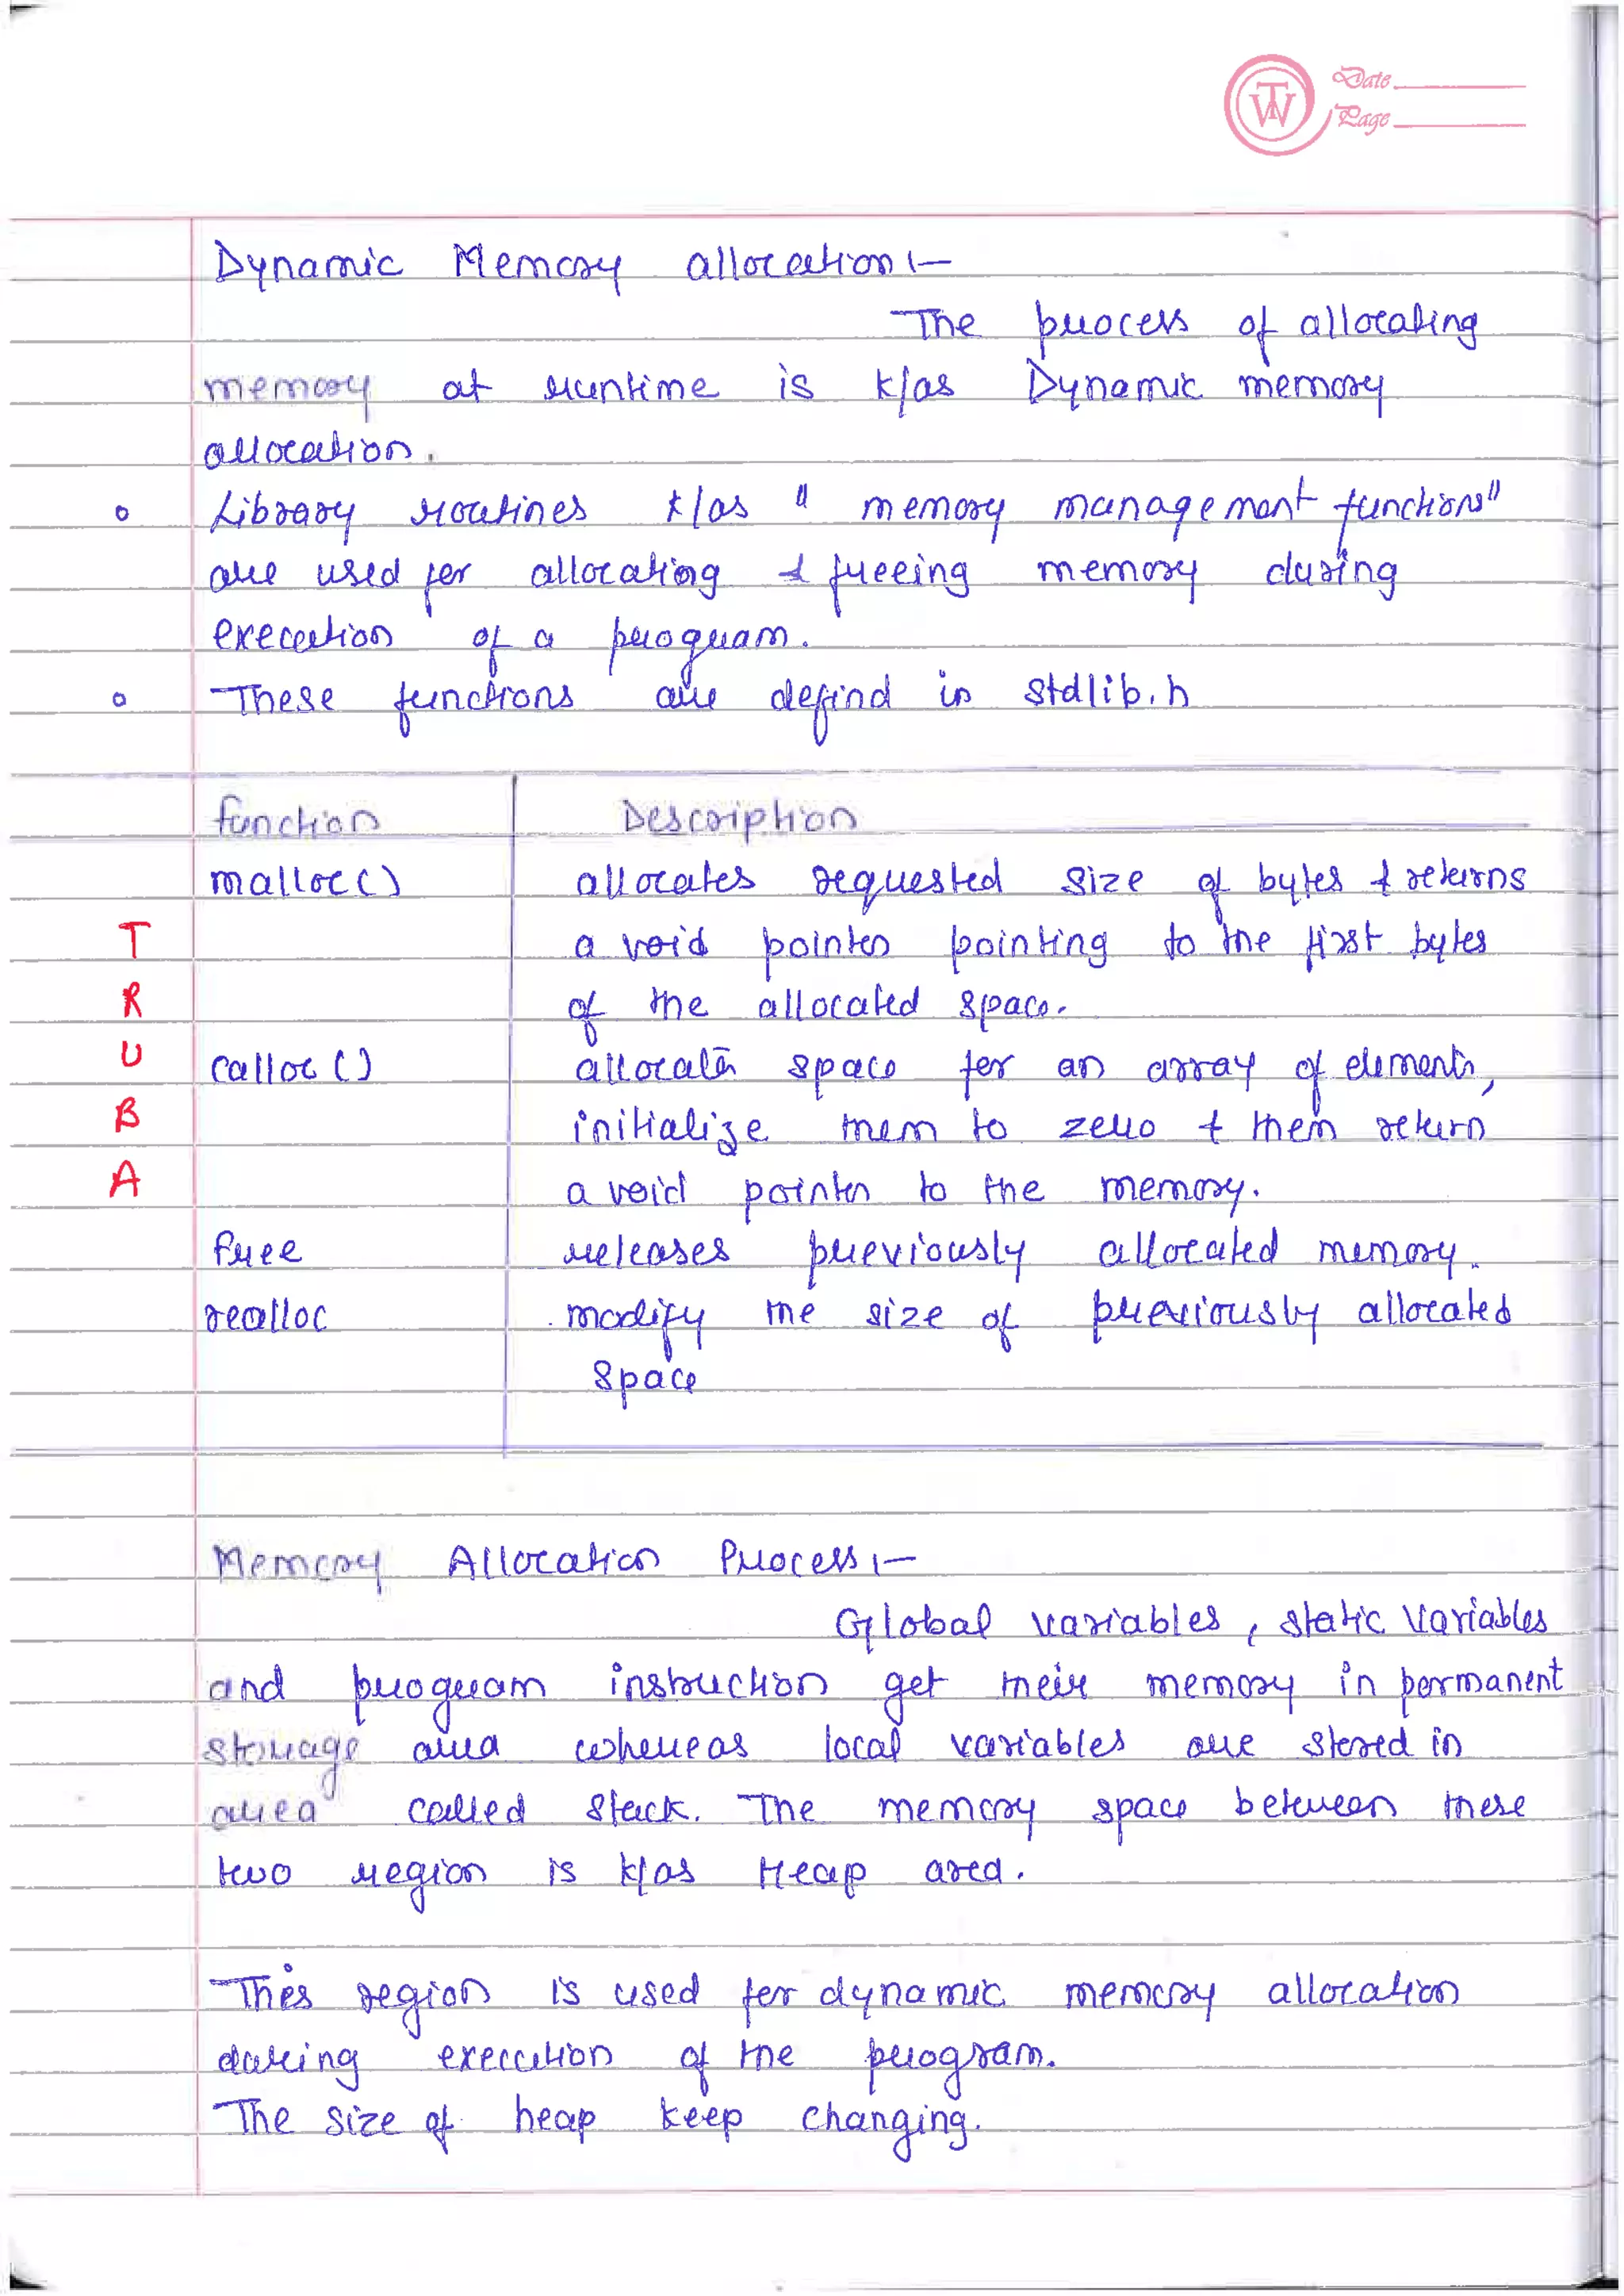 TW
Date
Page
Dynamic Memory allocation :-
The process of allocating
memory at runtime is k/as Dynamic memory
allocation.
Library routines k/as " memory management functions"
are used for allocating & freeing memory during
execution of a program.
These functions are defind in stdlib.h
function Description
malloc() allocates requested size of bytes & returns
a void pointer pointing to the first bytes
of the allocated space.
calloc () allocates space for an array of elements,
initialize them to zero & then return
a void pointer to the memory.
free releases previously allocated memory.
realloc modify the size of previously allocated
space
T
R
U
B
A
Memory Allocation Process :-
Global variables, static variables
and program instruction get their memory in permanent
storage area whereas local variables are stored in
area called stack. The memory space between these
two region is k/as Heap area.
This region is used for dynamic memory allocation
during execution of the program.
The size of heap keep changing.